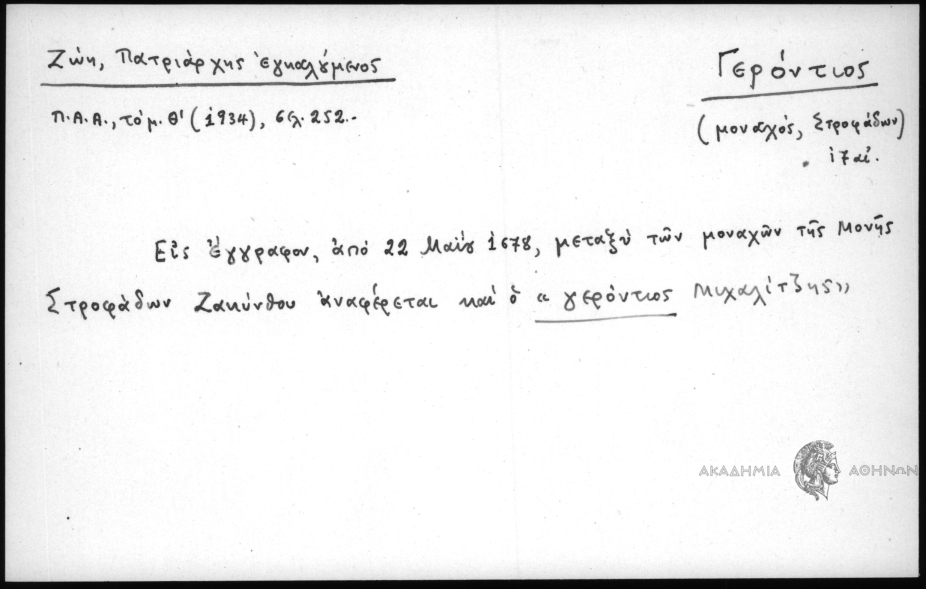 Ζώη, Πατριάρχης ἐγκαλούμενος
Π.Α.Α., τόμ. Θ' (1934), σελ. 252.-
Γερόντιος
(μοναχός, Στροφάδων)
17 αἰ.
Εἰς ἔγγραφον, ἀπό 22 Μαΐου 1678, μεταξύ τῶν μοναχῶν τῆς Μονῆς
Στροφάδων Ζακύνθου ἀναφέρεται καί ὁ « γερόντιος Μιχαλίτζης»
ΑΚΑΔΗΜΙΑ ΑΘΗΝΩΝ